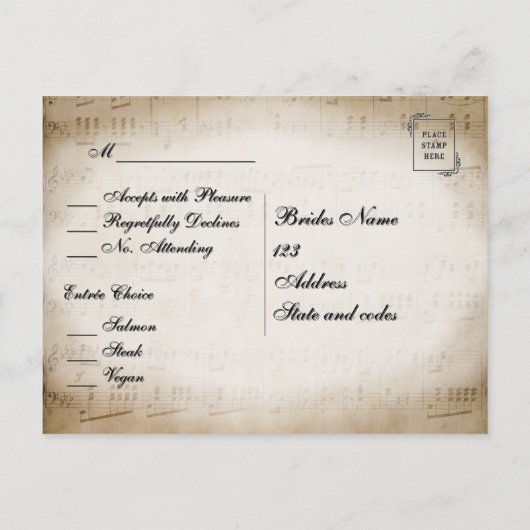 PLACE
STAMP
HERE
M
Accepts with Pleasure
Regretfully Declines
No. Attending
Entrée Choice
Salmon
Steak
Vegan
Brides Name
123
Address
State and codes